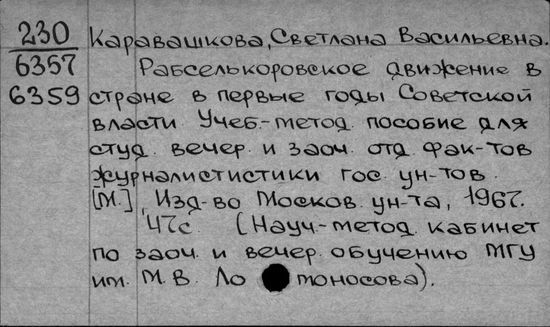 230 Каравашкова, Светлана Васильевна.
6357 Рабселькоровское движение в
6359 стране в первые годы Советской
власти. Учеб.-метод. пособие для
студ. вечер. и заоч. отд. фак-тов
журналистистики гос. ун-тов.
[М.], Изд-во Москов. ун-та, 1967.
47с. (Науч.-метод. кабинет
по заоч. и вечер. обучению МГУ
им. М.В. Ло моносова).